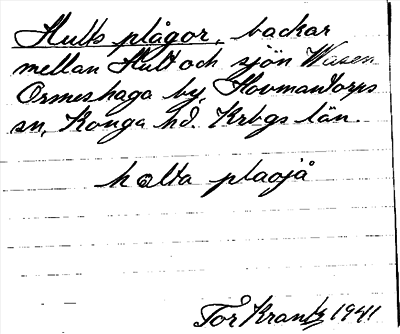 Hults plågor, backar
mellan Hult och sjön Wasen
Ormeshaga by, Hovmantorps
sn, Konga hd. Krbgs län.
hølta plaojå
Tor Krantz 1941